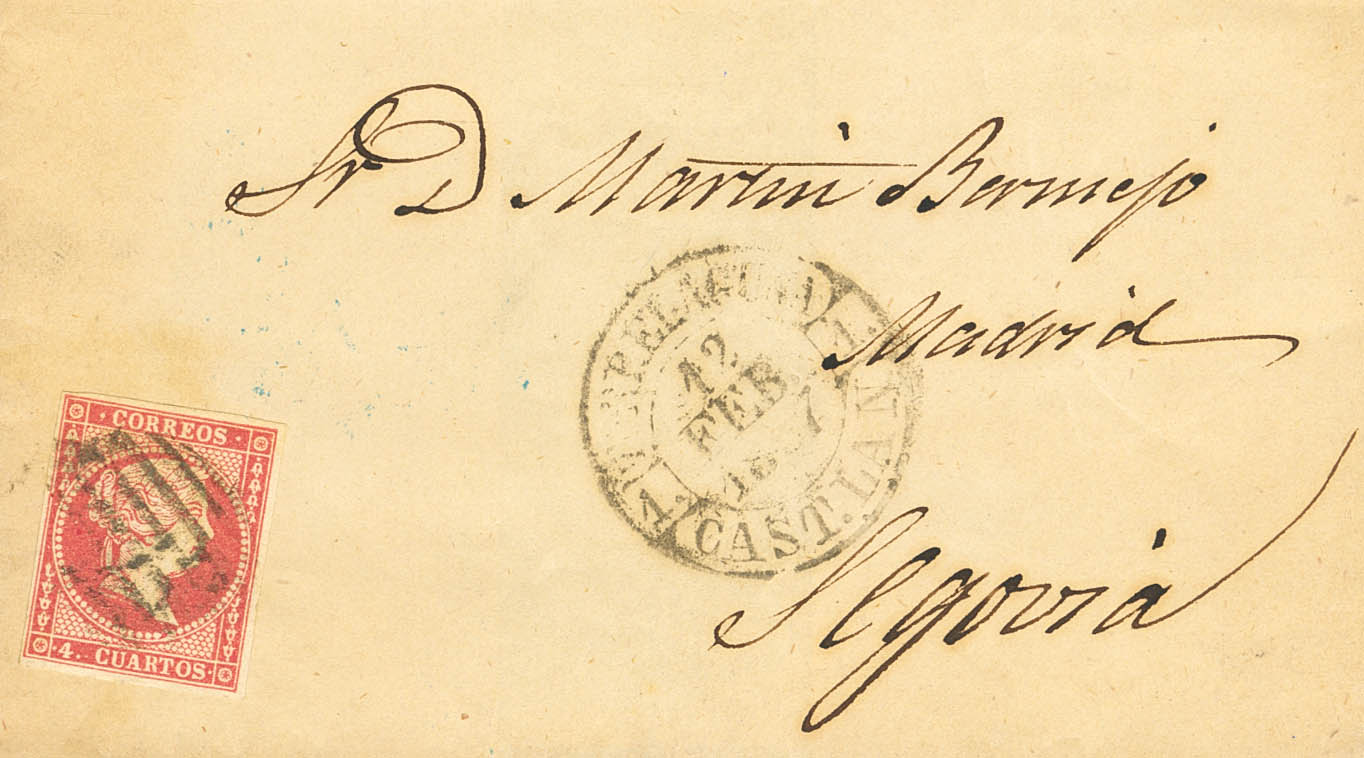 Sr D Martin Bermejo
Madrid
Segovia
12
FEB.
CAST. LA N.
CORREOS
4. CUARTOS.